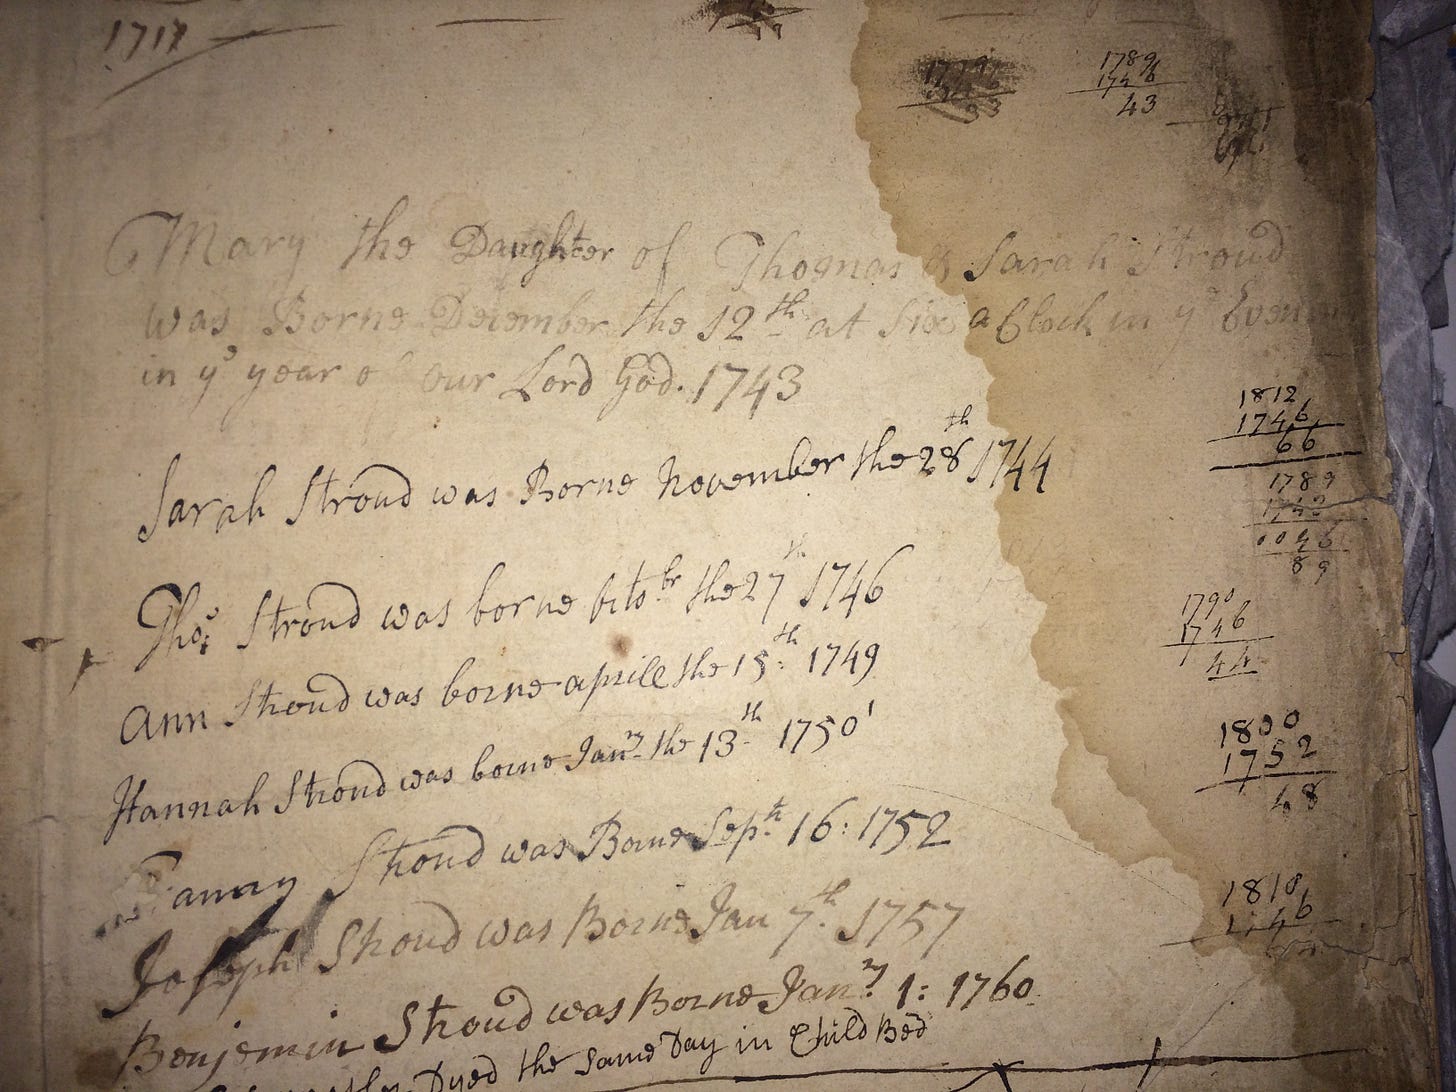 1717
1789
1746
43
Mary the Daughter of Thomas & Sarah Stroud
was Borne December the 12th at Six a Clock in ye
in ye year of our Lord God. 1743
Sarah Stroud was Borne November the 28th 1744
1812
1746
66
1789
89
Thos Stroud was borne the 27th 1746
1790
1746
44
Ann Stroud was borne aprill the 15th 1749
Hannah Stroud was borne Janry the 13th 1750
1800
1752
48
Stroud was Borne Septh 16: 1752
Joseph Stroud was Borne Jan 7th 1757
Benjemin Stroud was Borne Janry 1: 1760
Dyed the same Day in Child Bed